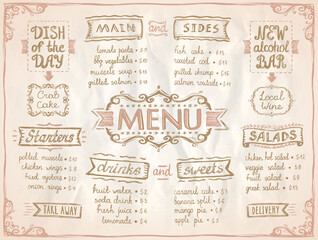 DISH
of the
DAY
Crab
Cake
MAIN and SIDES
tomato pasta • $ 15
bbq vegetables
mussels soup
grilled salmon
fish cake • $ 15
roasted cod
grilled shrimp
salmon tomato
NEW
alcohol
BAR
Local
Wine
MENU
Starters
pulled mussels
chicken wings • $ 8
hot oysters
onion rings
TAKE AWAY
drinks and sweets
fruit water • $ 2
soda • $ 3
fresh juice
lemonade • $ 4
caramel cake • $ 5
banana split
mango pie • $ 4
apple pie
SALADS
chicken hot salad
veggie salad
fruit salad
greek salad
DELIVERY